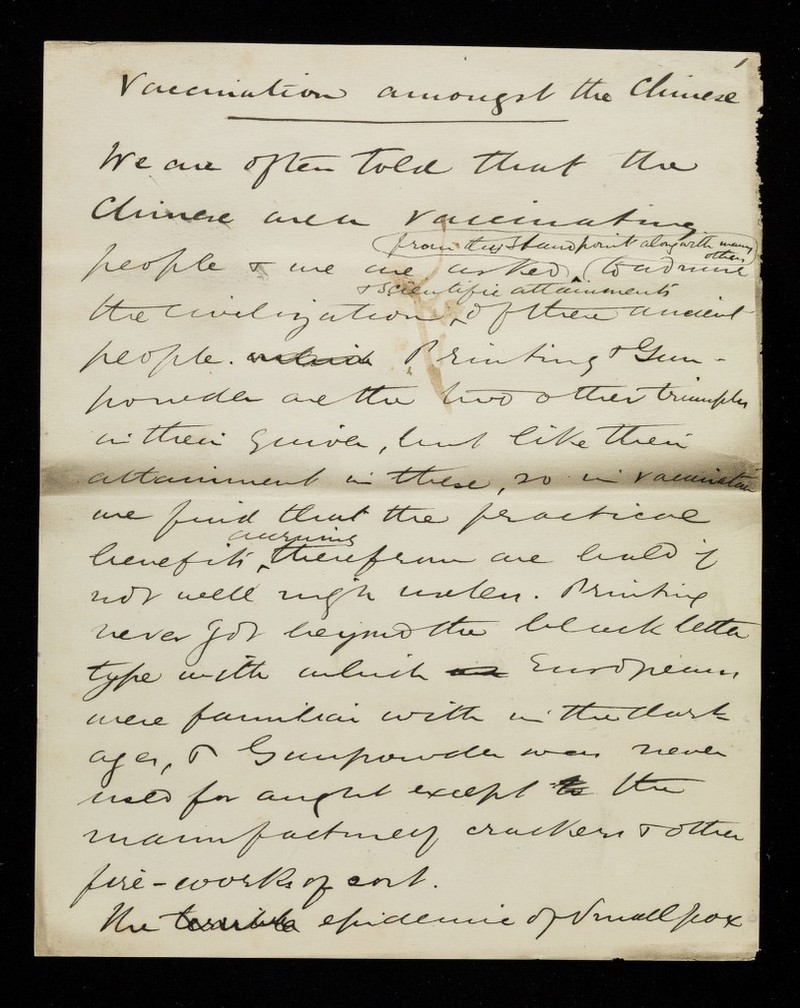 1
Vaccination amongst the Chinese
We are often told that the
Chinese are a vaccinating
from this standpoint along with many
others
people & we are asked, to admire
& scientific attainments
the civilization, of these ancient
people. which Printing & Gun-
powder are the two other triumphs
in their quiver, but like their
attainment in these, so in vaccination
we find that the practical
accruing
benefits therefrom are but if
not well nigh useless. Printing
never got beyond the black letter
type with which Europeans
were familiar with in the dark
ages, & Gunpowder was never
used for aught except to the
manufacture of crackers & other
fire-works of sort.
The terrible epidemic of Small pox